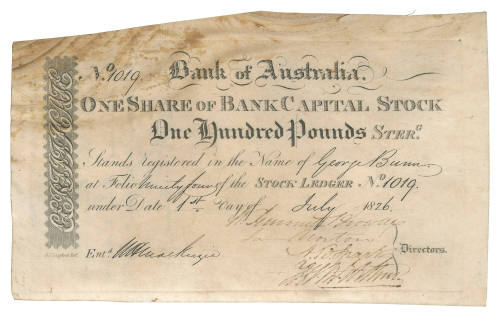 CERTIFICATE
No. 1019. Bank of Australia.
ONE SHARE OF BANK CAPITAL STOCK
One Hundred Pounds STERG.
Stands registered in the Name of George Bunn
at Folio ninety four of the STOCK LEDGER No. 1019.
under Date 1st Day of July 1826.
Directors.
Entd.